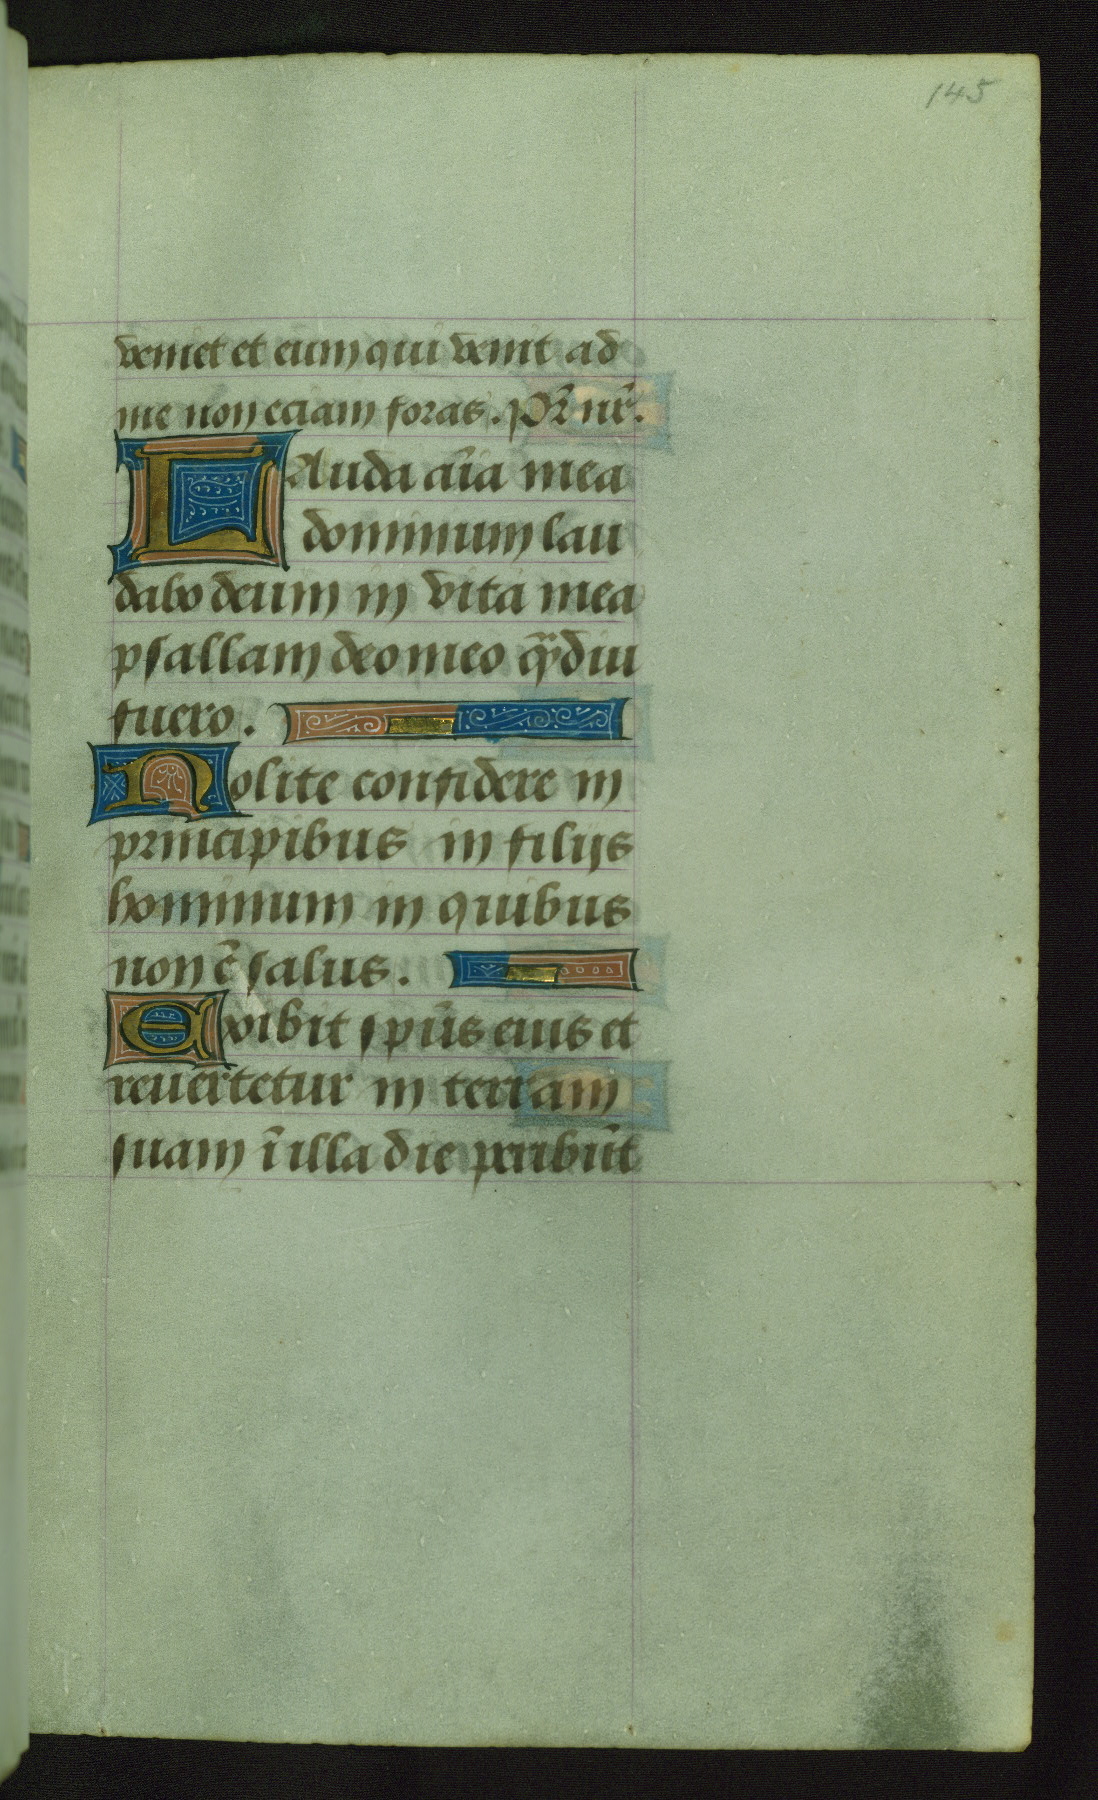 145
veniet et eum qui venit ad
me non eciam foras. Pr̄ nr̄.
LAuda aīa mea
dominum lau
dabo deum in vita mea
psallam deo meo q̄diu
fuero.
Nolite confidere in
principibus in filijs
hominum in quibus
non ē salus.
Exibit sp̄us eius et
reuertetur in terram
suam ī illa die peribūt